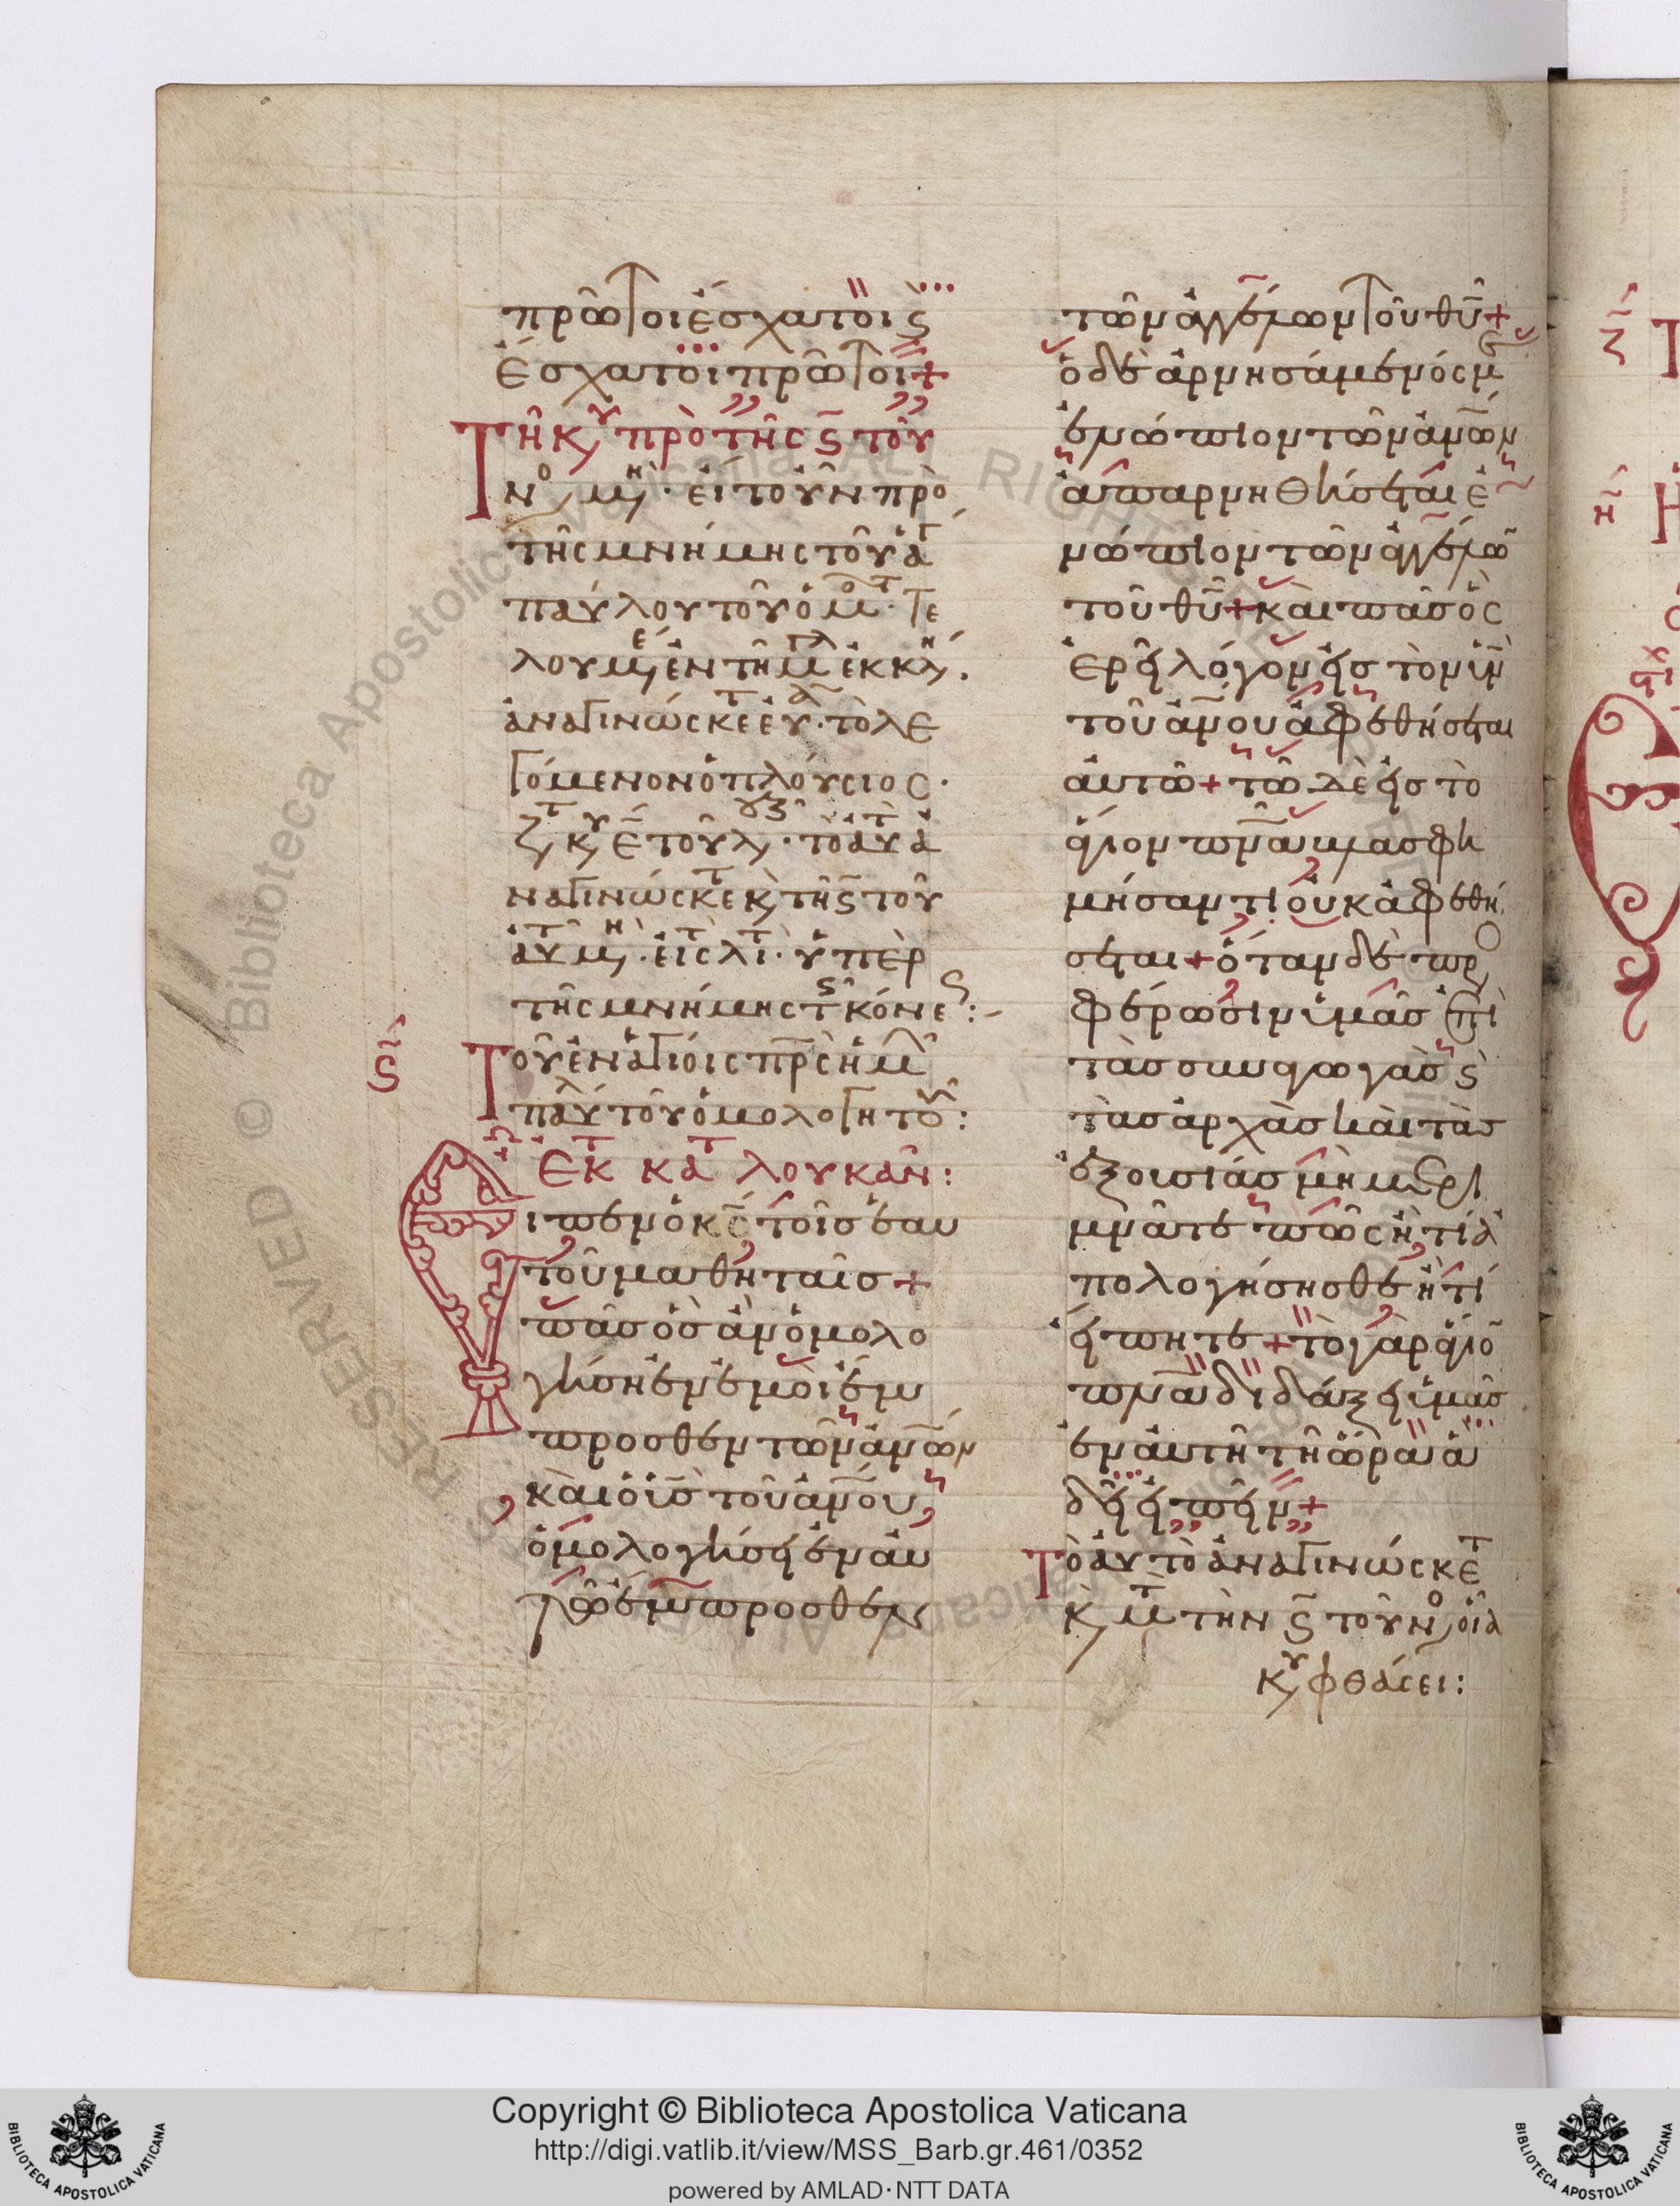 πρῶτοι ἔσχατοι ϛ
ἔσχατοι πρῶτοι +
Τῆ κυ πρὸ τῆς ϛ τοῦ
νο μη · εἴτουν πρὸ
τῆς μνήμης τοῦ ἁτ
παύλου τοῦ ὁμοτ · τε
λουμέ ἐν τῆ μγλ ἐκκλη .
ἀναγινώσκετ εὐα · τὸ λε
γόμενον ὁ πλούσιος ·
ζτ κυ ε τοῦ λουξ · τὸ ἀυτ ἀ
ναγινώσκετ κ τῆ ϛ τοῦ
ἀυτ μη · εἰς λιτ · ὑπὲρ
τῆς μνήμης τ κόνεϛ :-
ϛι
Τοῦ ἐν ἁγίοις πρς ἡμ
παύλ τοῦ ὁμολογητοῦ :
Ἐκ τ κατ λουκᾶν :
Ειπεν ὁ κς τοῖς ἑαυ
τοῦ μαθηταῖς +
πᾶς ὃς ἂν ὁμολο
γήση ἐν ἐμοὶ ἔμ
προσθεν τῶν ἀνῶν
καὶ ὁ υἱς τοῦ ἀνου
ὁμολογήσει ἐν αυ
τῶ ἔμπροσθεν
τῶν ἀγγέλων τοῦ θυ +
ὁ δὲ ἀρνησάμενός μ
ἐνώπιον τῶν ἀνῶν
ἀπαρνηθήσεται ἐ
νώπιον τῶν ἀγγέλω
τοῦ θυ + καὶ πᾶς ὃς
ἐρεῖ λόγον εἰς τὸν υἱν
τοῦ ἀνου ἀφεθήσεται
αὐτῶ + τῶ δὲ εἰς τὸ
ἅγιον πνα βλασφη
μήσαντι οὐκ ἀφεθή
σεται + ὅταν δὲ προ
φέρωσιν ὑμᾶς ἐπὶ
τὰς συναγωγὰς ϛ
τὰς ἀρχὰς καὶ τὰς
ἐξουσίας μὴ μερι
μνᾶτε πῶς ἢ τί ἀ
πολογήσησθε ἢ τί
εἴπητε + τὸ γὰρ ἅγιο
πνα διδάξει ὑμᾶς
ἐν αὐτῆ τῆ ὥρα ἃ
δεῖ εἰπεῖν +
Τὸ ἀυτὸ ἀναγινώσκετ
κ μτ τὴν ϛ τοῦ νο οἵα
κυ φθάσει :
ζι
ηι
Copyright © Biblioteca Apostolica Vaticana
http://digi.vatlib.it/view/MSS_Barb.gr.461/0352
powered by AMLAD·NTT DATA
BIBLIOTECA APOSTOLICA VATICANA
BIBLIOTECA APOSTOLICA VATICANA